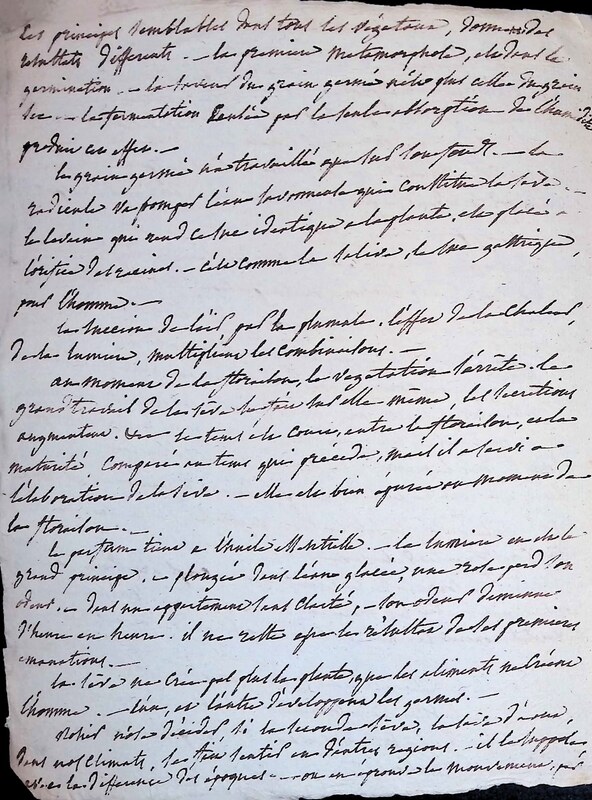 Les principes semblables dans tous les végétaux, donnent des
résultats différents. — la premiere métamorphose, est dans la
germination. — la saveur du grain germé n'est plus celle du grain
sec. — la fermentation causée par la seule absorption de l'humidité
produit ces effets. —
le grain germé n'a travaillé que sur son fond. — la
radicule va pomper l'eau qui constitue la séve. —
le levain qui rend ce suc identique a la plante, est placé a
l'orifice des racines. — c'est comme la salive, le suc gastrique,
pour l'homme. —
la succion de l'air par la plumule, l'effet de la chaleur,
de la lumiere, multiplient les combinaisons. —
au moment de la floraison, la végétation s'arrête. le
grand travail de la séve se fait sur elle même, les secretions
augmentent. le tems est court, entre la floraison, et la
maturité, comparé au tems qui precede, mais il a servi a
l'élaboration de la séve. — elle est bien épurée au moment de
la floraison. —
le parfum tient a l'huile essentielle. — la lumiere en est le
grand principe. — plongée dans l'eau glacée, une rose perd son
odeur. — dans un appartement sans clarté, — son odeur diminue
d'heure en heure. il ne reste que les résultats de ses premieres
émanations. —
la séve ne crée pas plus la plante, que les aliments ne créent
l'homme. — l'un, et l'autre développent les germes. —
n'ose décider, si la seconde séve, la séve d'aout,
dans nos climats, se fait sentir en d'autres regions. — il le suppose
avec la différence des époques. — on en éprouve le mouvement, par